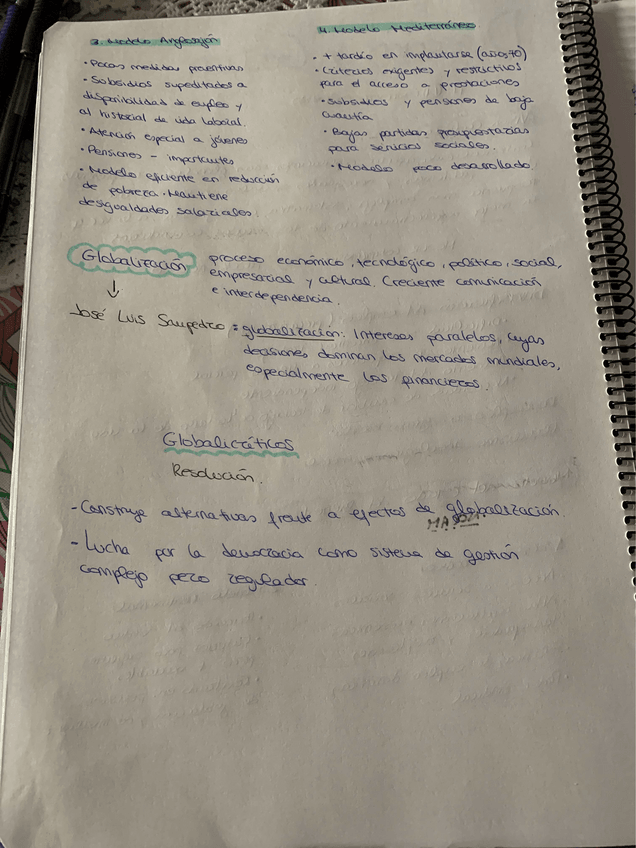 3. Modelo Anglosajón
• Pocas medidas preventivas
• Subsidios supeditados a
disponibilidad de empleo y
al historial de vida laboral.
• Atención especial a jóvenes
• Pensiones - importantes
• Modelo eficiente en reducción
de pobreza. Mantiene
desigualdades salariales.
4. Modelo Mediterráneo
• + tardío en implantarse (años 70)
• Criterios exigentes y restrictivos
para el acceso a prestaciones
• Subsidios y pensiones de baja
cuantía
• Bajas partidas presupuestarias
para servicios sociales.
• Modelo poco desarrollado
Globalización
proceso económico, tecnológico, político, social,
empresarial y cultural. Creciente comunicación
e interdependencia.
↓
José Luis Sampedro: globalización: Intereses paralelos, cuyas
decisiones dominan los mercados mundiales,
especialmente los financieros.
Globalicríticos
Resolución.
- Construye alternativas frente a efectos de globalización
- Lucha por la democracia como sistema de gestión
complejo pero regulador.